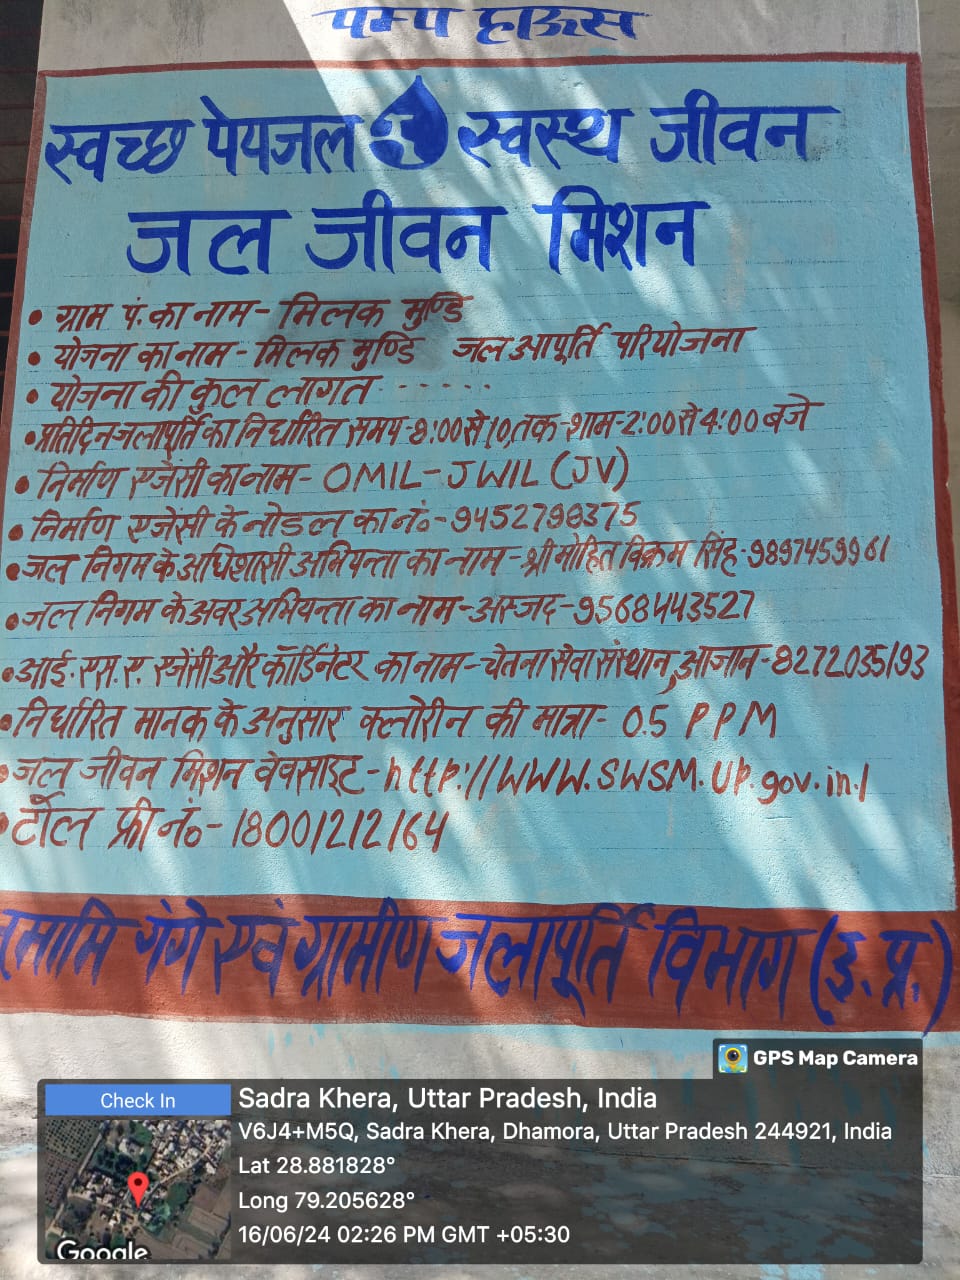 पम्प हाऊस
स्वच्छ पेयजल स्वस्थ जीवन
जल जीवन मिशन
• ग्राम पं. का नाम - मिलक मुण्डि
• योजना का नाम - मिलक मुण्डि जल आपूर्ति परियोजना
• योजना की कुल लागत - - - - - -
• प्रतिदिन जलापूर्ति का निर्धारित समय - 8:00 से 10, तक - शाम - 2:00 से 4:00 बजे
• निर्माण एजेंसी का नाम - OMIL - JWIL (JV)
• निर्माण एजेंसी के नोडल का नं॰ - 9452798375
• जल निगम के अधिशासी अभियन्ता का नाम - श्री मोहित विक्रम सिंह - 9897459961
• जल निगम के अवर अभियन्ता का नाम - अस्जद - 9568443527
• आई. एस. ए. एजेंसी और कॉर्डिनेटर का नाम - चेतना सेवा संस्थान, आजान - 8272035193
• निर्धारित मानक के अनुसार क्लोरीन की मात्रा - 0.5 PPM
• जल जीवन मिशन वेबसाइट - http://WWW.SWSM.UP.gov.in/
• टोल फ्री नं॰ - 18001212164
नमामि गंगे एवं ग्रामीण जलापूर्ति विभाग (उ.प्र.)
GPS Map Camera
Check In
Sadra Khera, Uttar Pradesh, India
V6J4+M5Q, Sadra Khera, Dhamora, Uttar Pradesh 244921, India
Lat 28.881828°
Long 79.205628°
16/06/24 02:26 PM GMT +05:30
Google